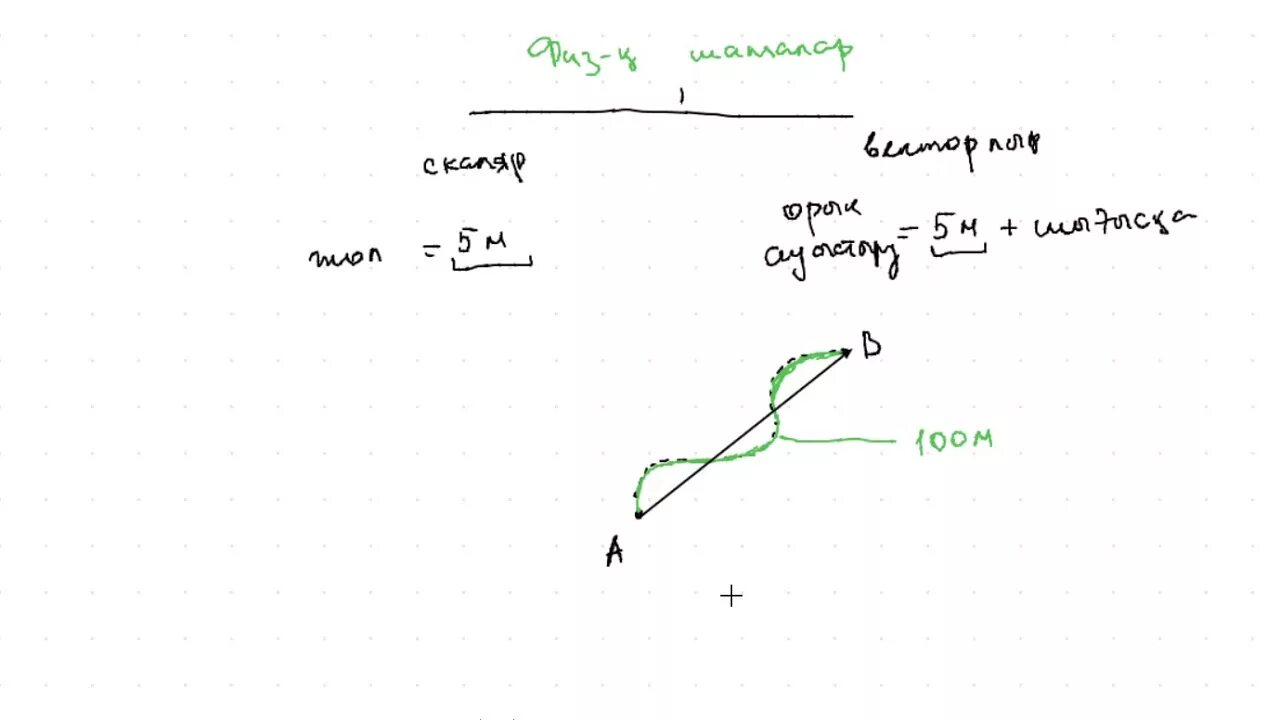 Физ-қ шамалар
скаляр
векторлық
жол = 5 м
орын
ауыстыру = 5 м + шығысқа
B
100 м
A